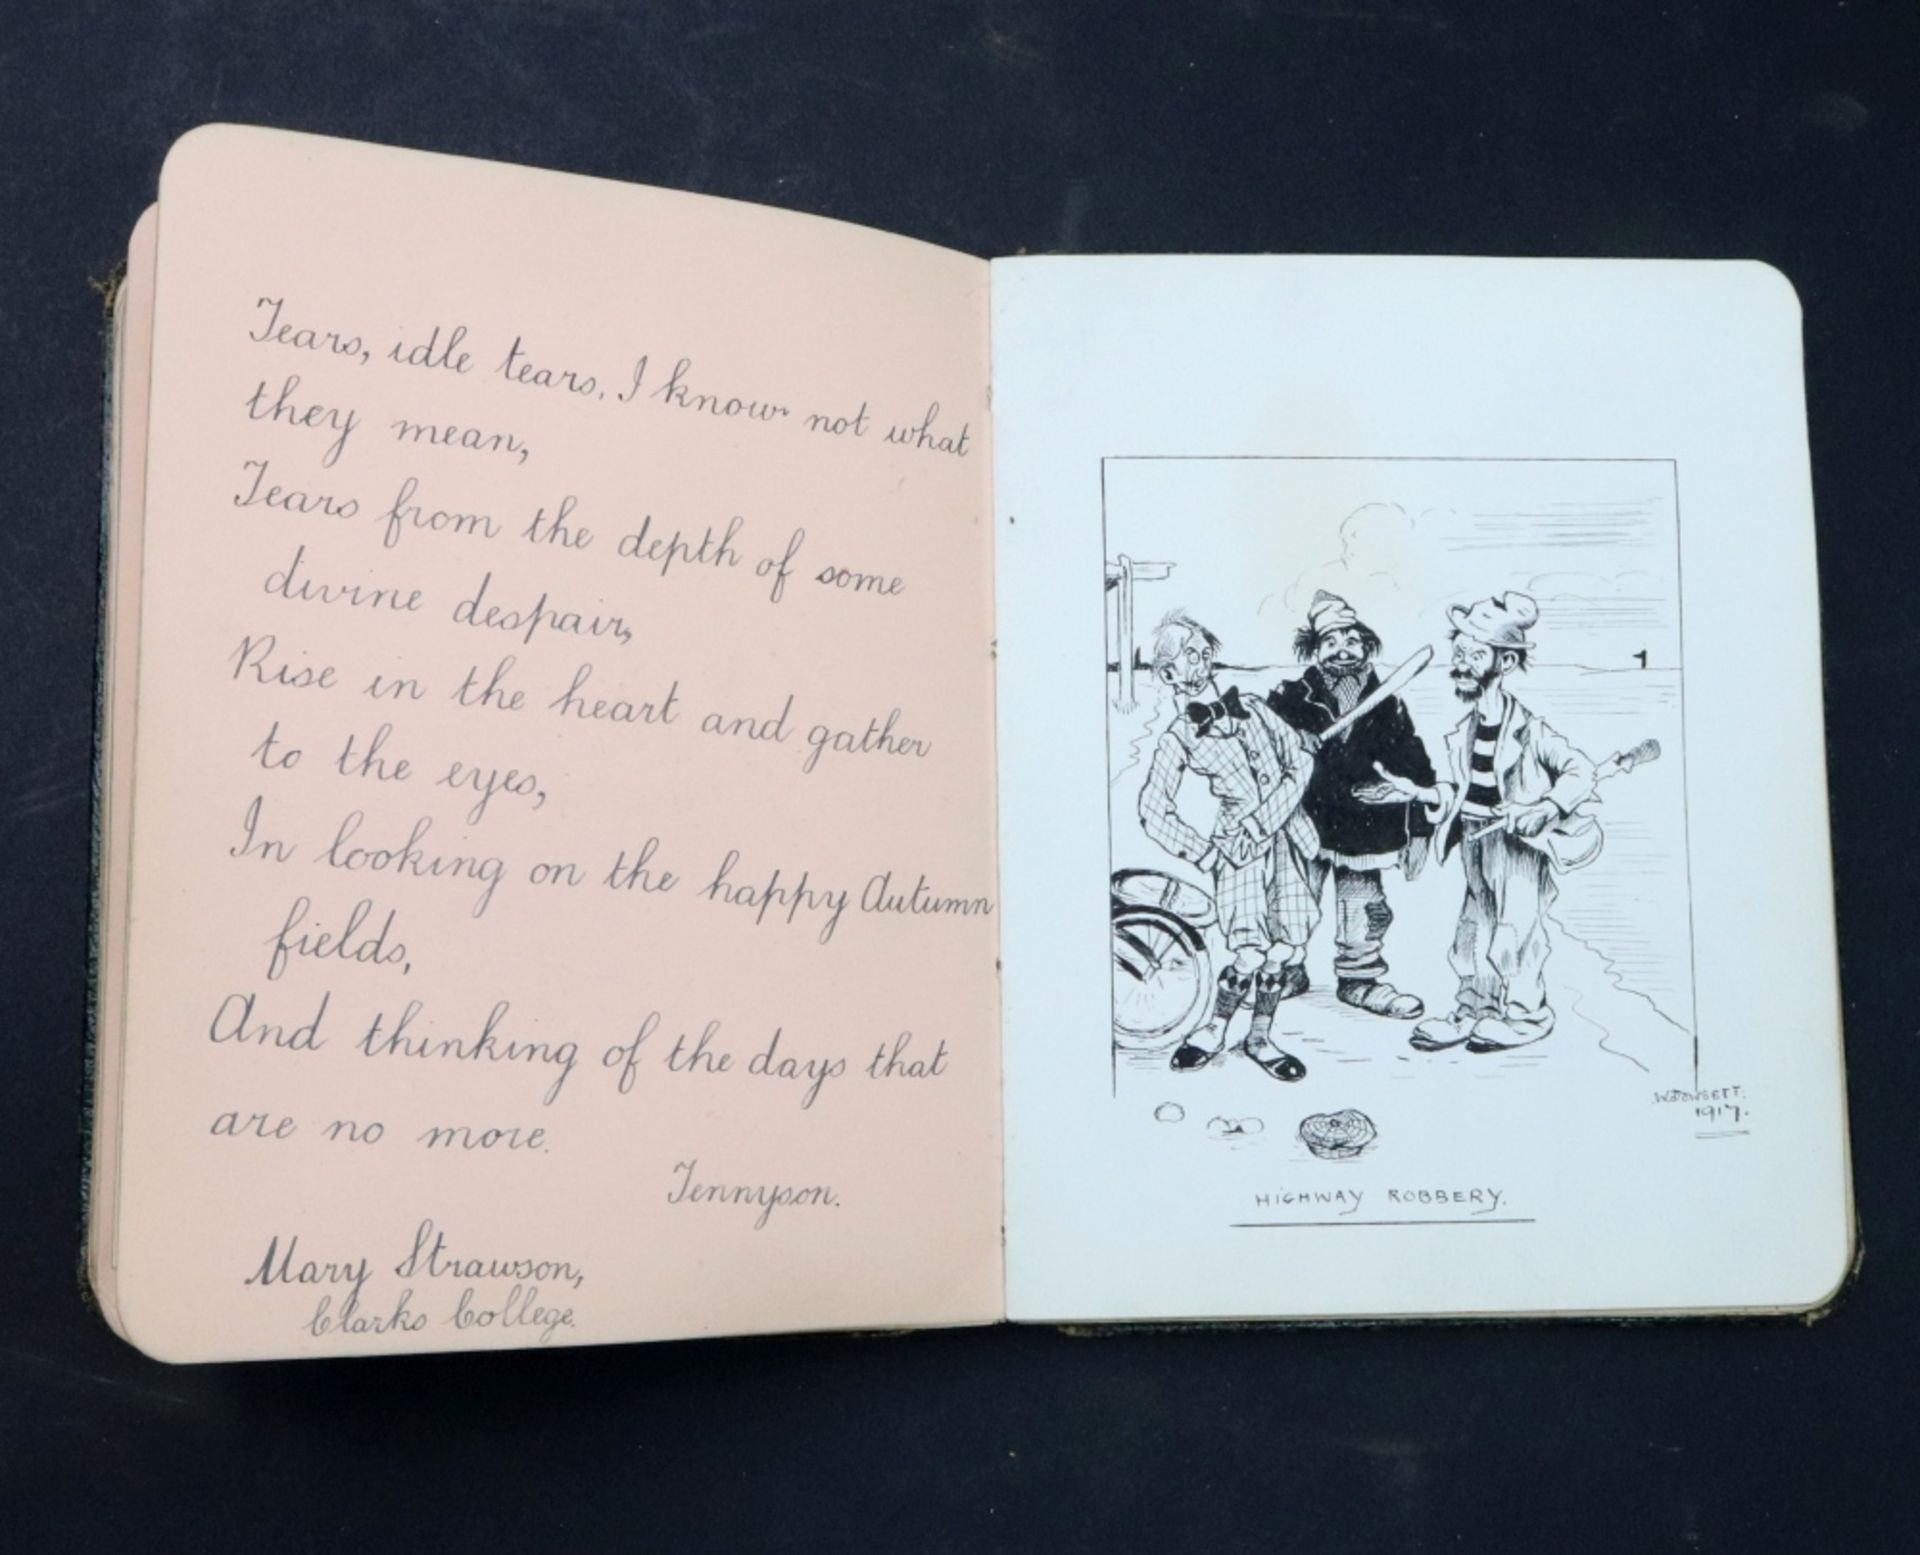 Tears, idle tears, I know not what
they mean,
Tears from the depth of some
divine despair,
Rise in the heart and gather
to the eyes,
In looking on the happy Autumn
fields,
And thinking of the days that
are no more.
Tennyson.
Mary Strawson,
Clarks College.
W. DOWSETT.
1917.
HIGHWAY ROBBERY.